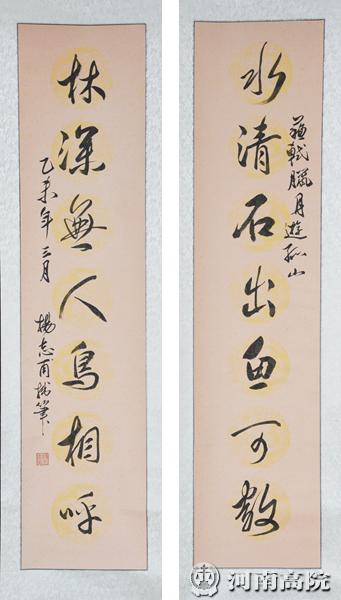 水清石出鱼可数
苏轼腊月遊孤山
林深無人鳥相呼
乙未年三月
楊志甫於筆
河南高院